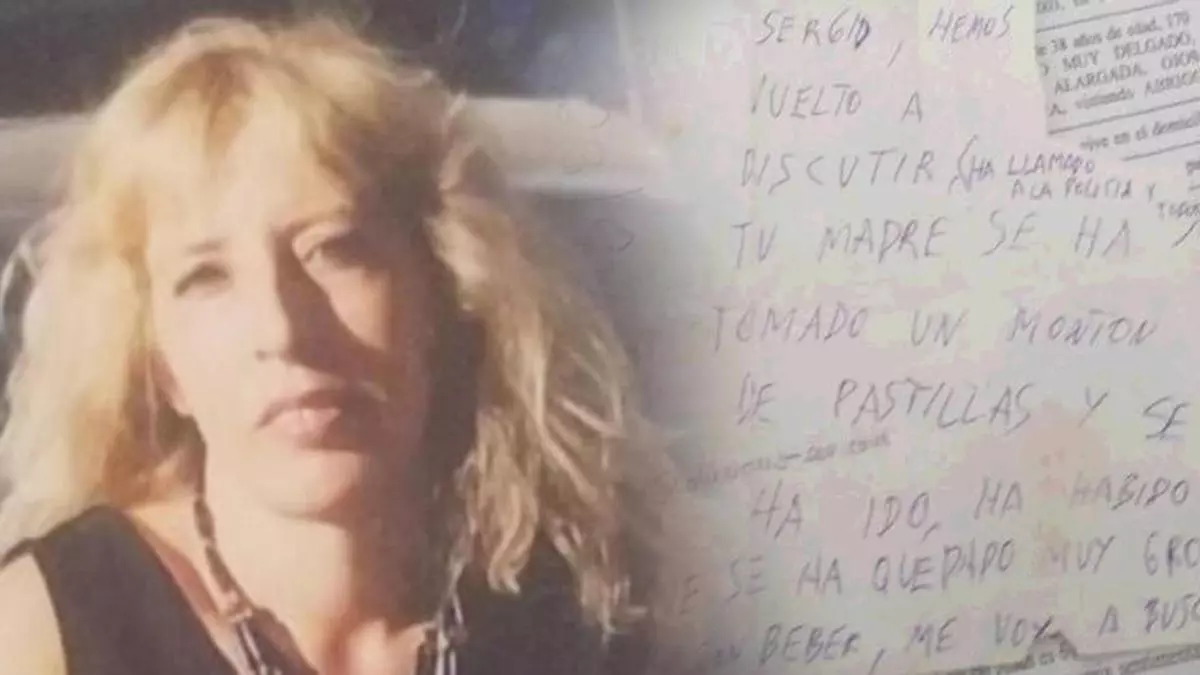 SERGIO, HEMOS
VUELTO A
DISCUTIR (HA LLAMADO
A LA POLICIA Y
TU MADRE SE HA
TOMADO UN MONTON
DE PASTILLAS Y SE
HA IDO, HA HABIDO
SE HA QUEDADO MUY
BEBER, ME VOY A
38 años de edad, 170
MUY DELGADO,
ALARGADA, OJOS
A, vistiendo
vive en el